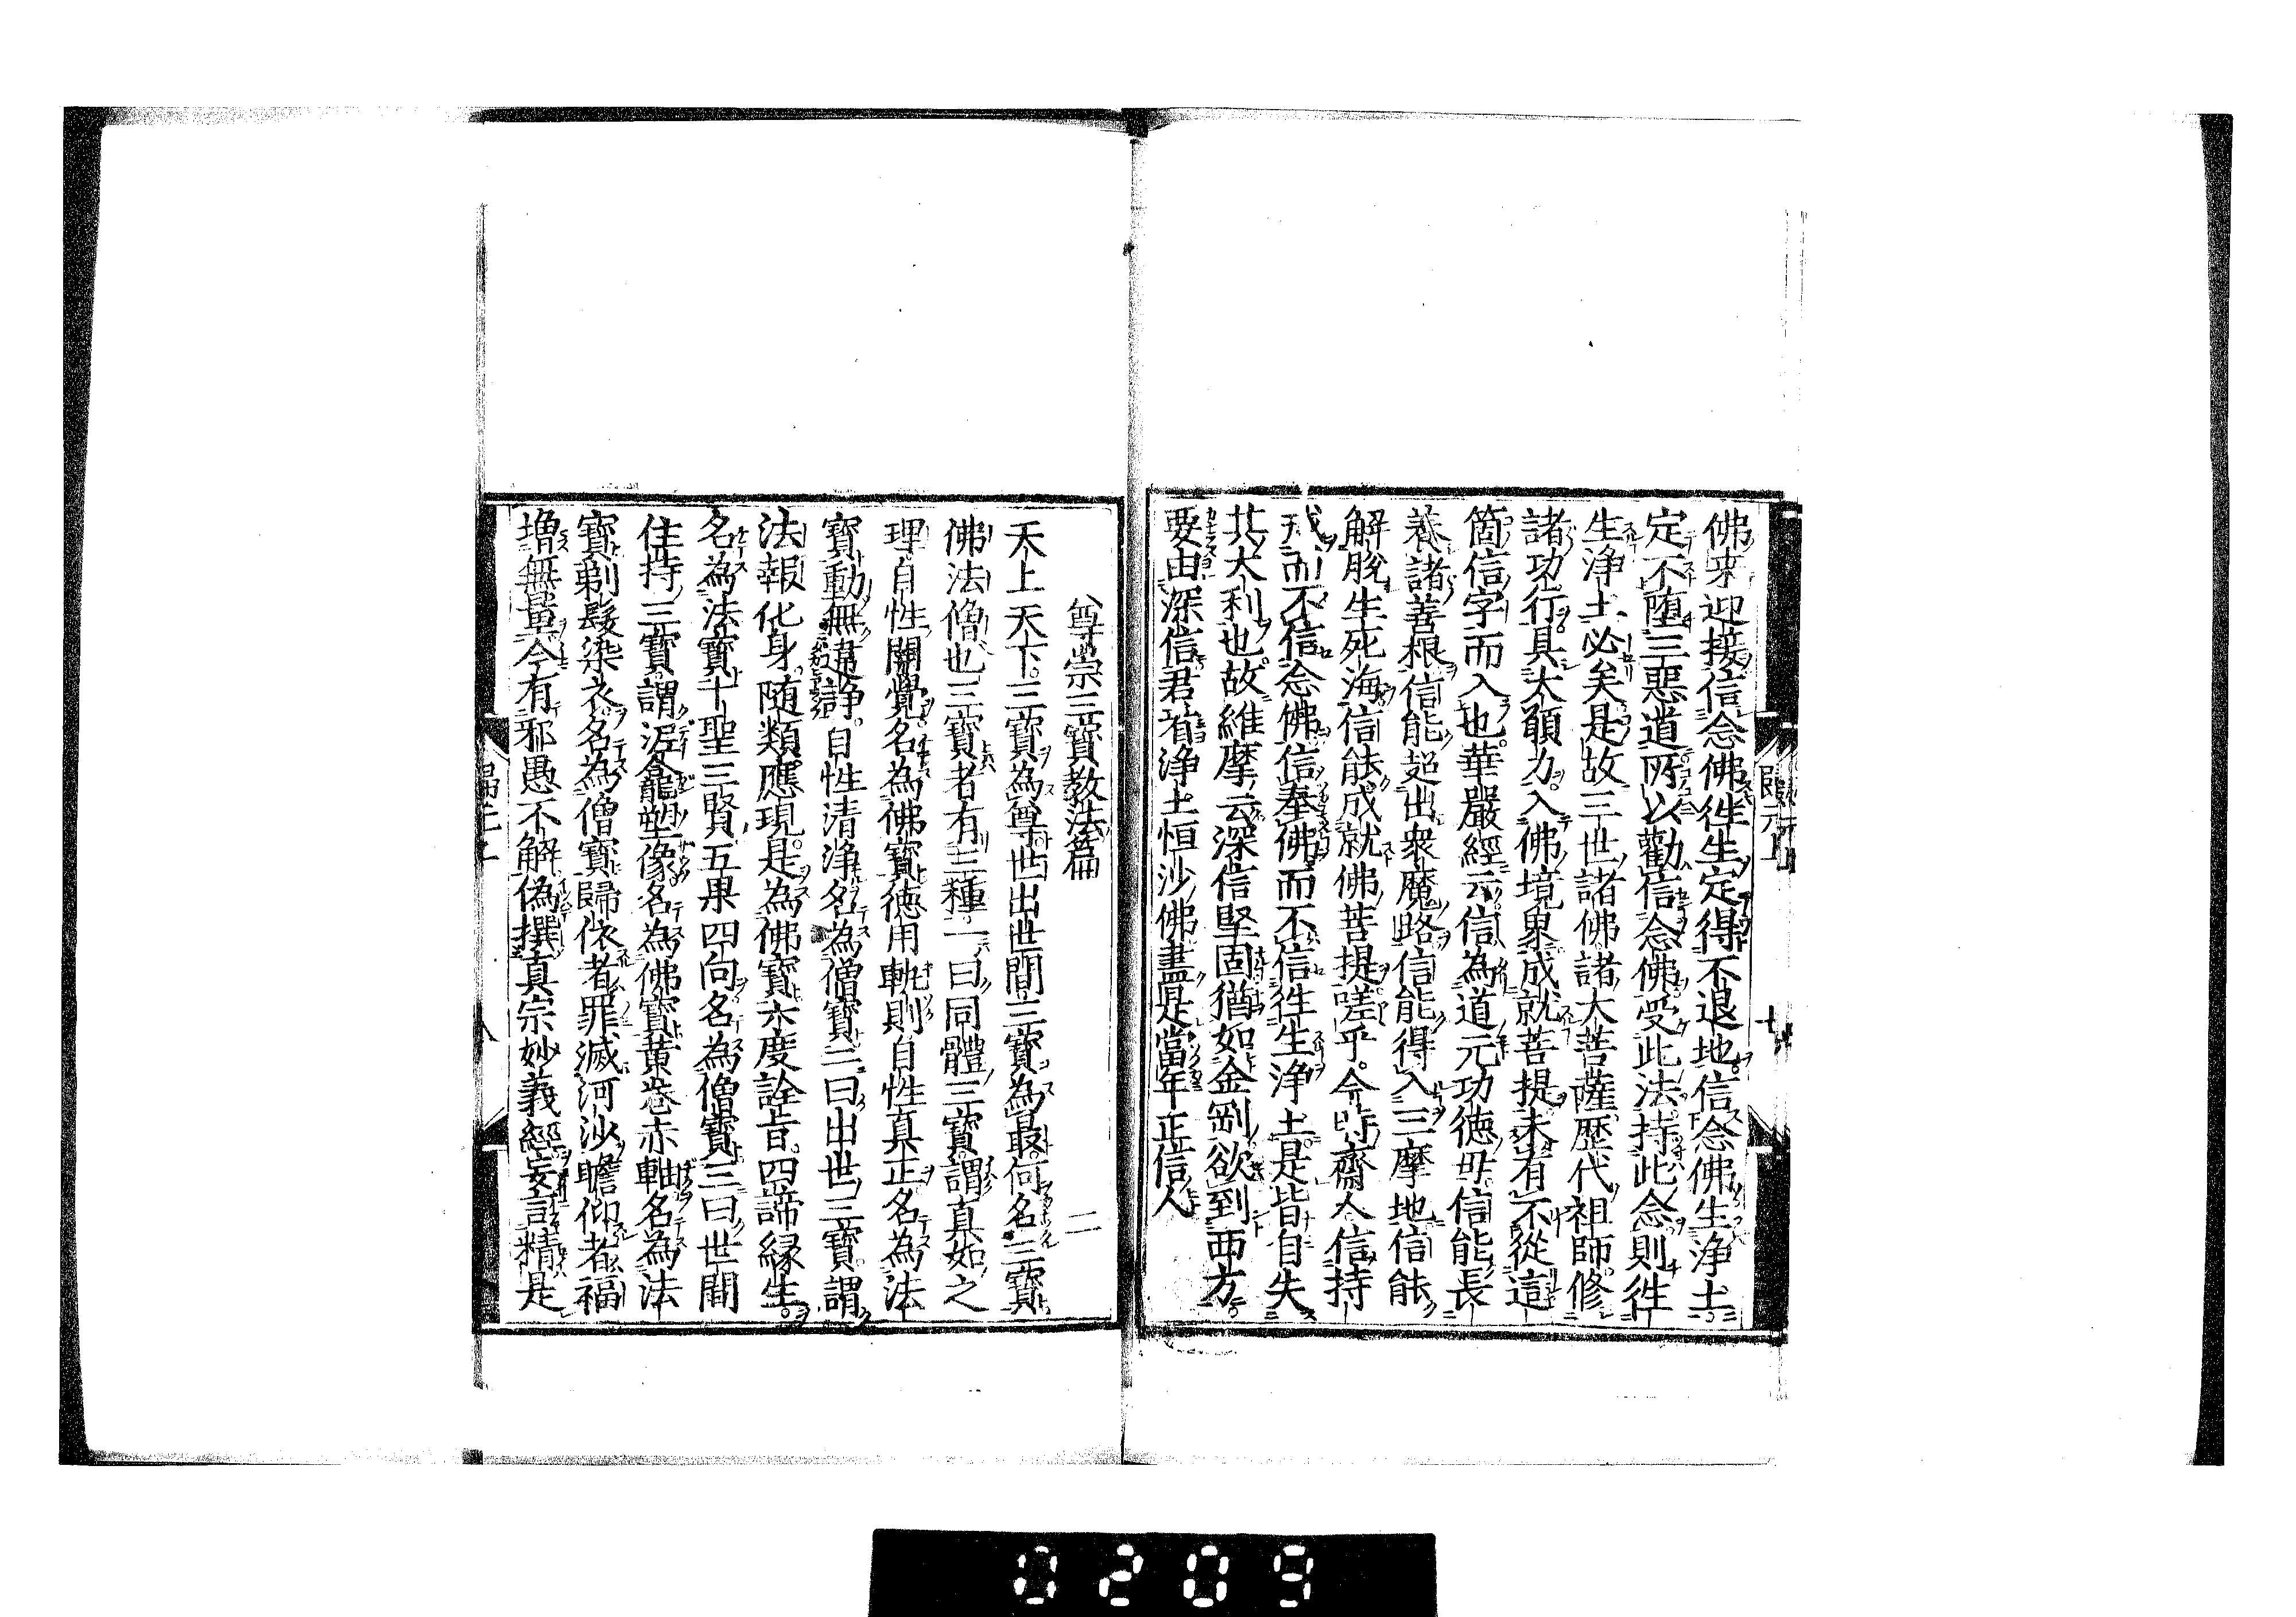 佛來迎接信念佛往生定得不退地信念佛生淨土
定不墮三惡道所以勸信念佛受此法持此念則往
生淨土必矣是故三世諸佛諸大菩薩歷代祖師修
諸功行具大願力入佛境界成就菩提未有不從這
箇信字而入也華嚴經云信為道元功德母信能長
養諸善根信能超出眾魔路信能得入三摩地信能
解脫生死海信能成就佛菩提嗟乎今時齋人信持
戒而不信念佛信奉佛而不信往生淨土是皆自失
其大利也故維摩云深信堅固猶如金剛欲到西方
要由深信君看淨土恒沙佛盡是當年正信人
尊崇三寶教法篇 二
天上天下三寶為尊世出世間三寶為最何名三寶
佛法僧也三寶者有三種一曰同體三寶謂真如之
理自性開覺名為佛寶德用軌則自性真正名為法
寶動無違諍自性清淨名為僧寶二曰出世三寶謂
法報化身隨類應現是為佛寶六度詮旨四諦緣生
名為法寶十聖三賢五果四向名為僧寶三曰世間
住持三寶謂泥龕塑像名為佛寶黃卷赤軸名為法
寶剃髮染衣名為僧寶歸依者罪滅河沙瞻仰者福
增無量今有邪愚不解偽撰真宗妙義經妄言精是
0209